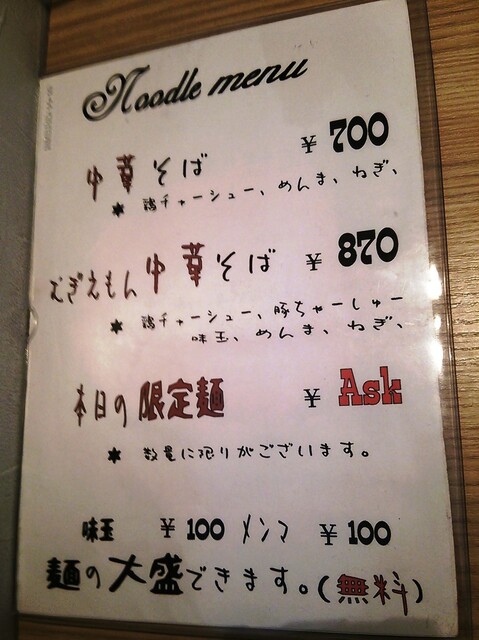 Noodle menu
中華そば ¥ 700
* 鶏チャーシュー、めんま、ねぎ、
むぎえもん 中華そば ¥ 870
* 鶏チャーシュー、豚ちゃーしゅー
味玉、めんま、ねぎ、
本日の限定麺 ¥ Ask
* 数量に限りがございます。
味玉 ¥ 100 メンマ ¥ 100
麺の大盛できます。(無料)